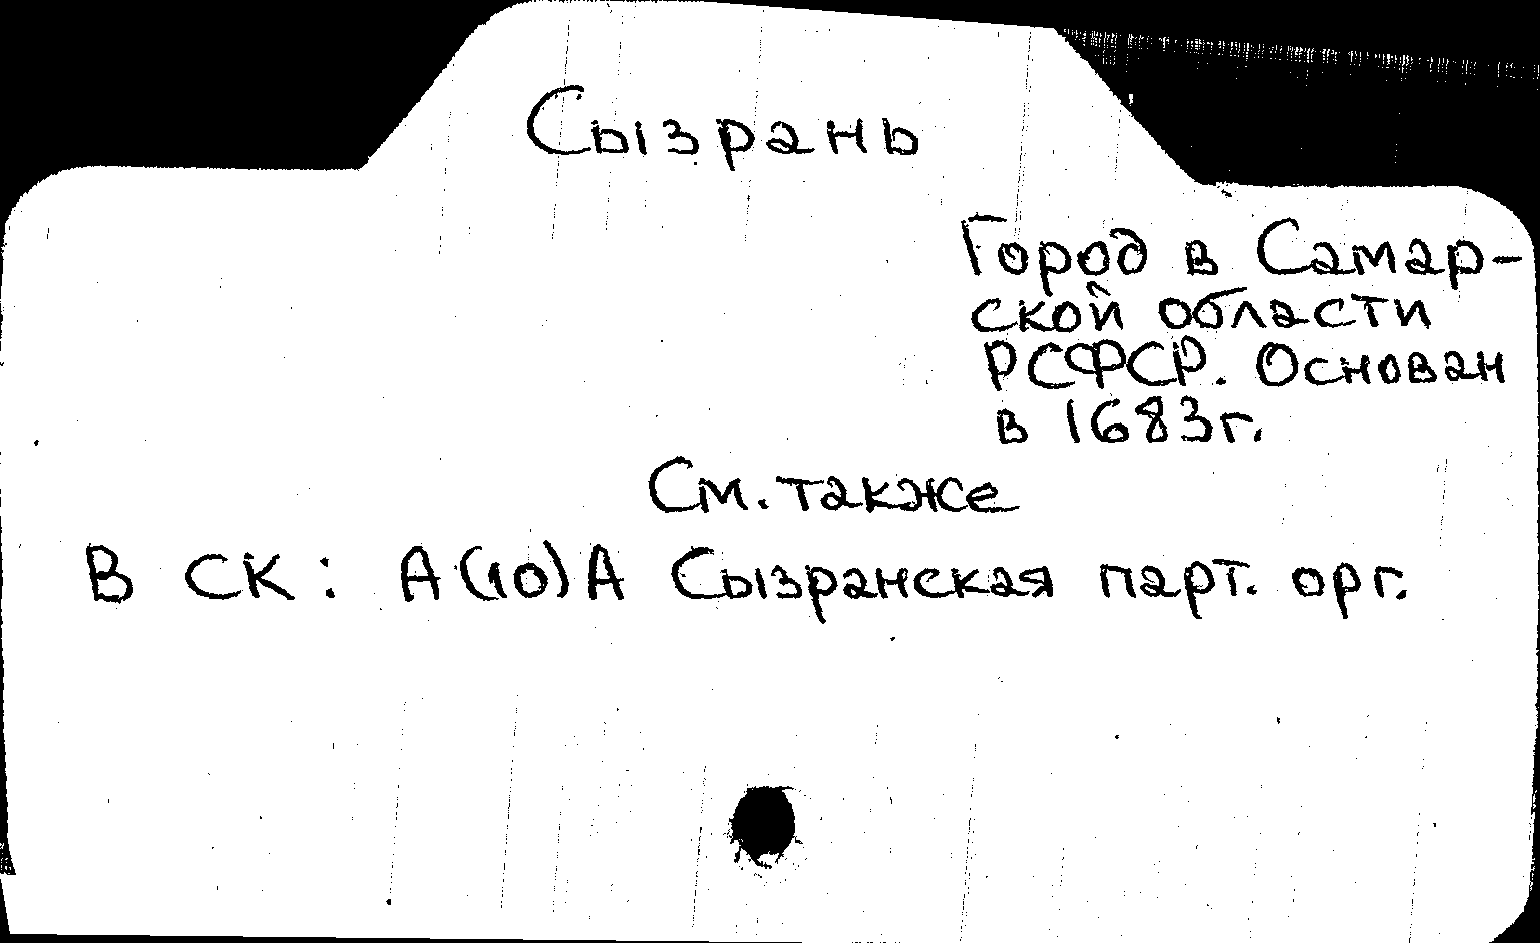 Сызрань
Город в Самар-
ской области
РСФСР. Основан
в 1683г.
См. также
В СК: А(10)А Сызранская парт. орг.